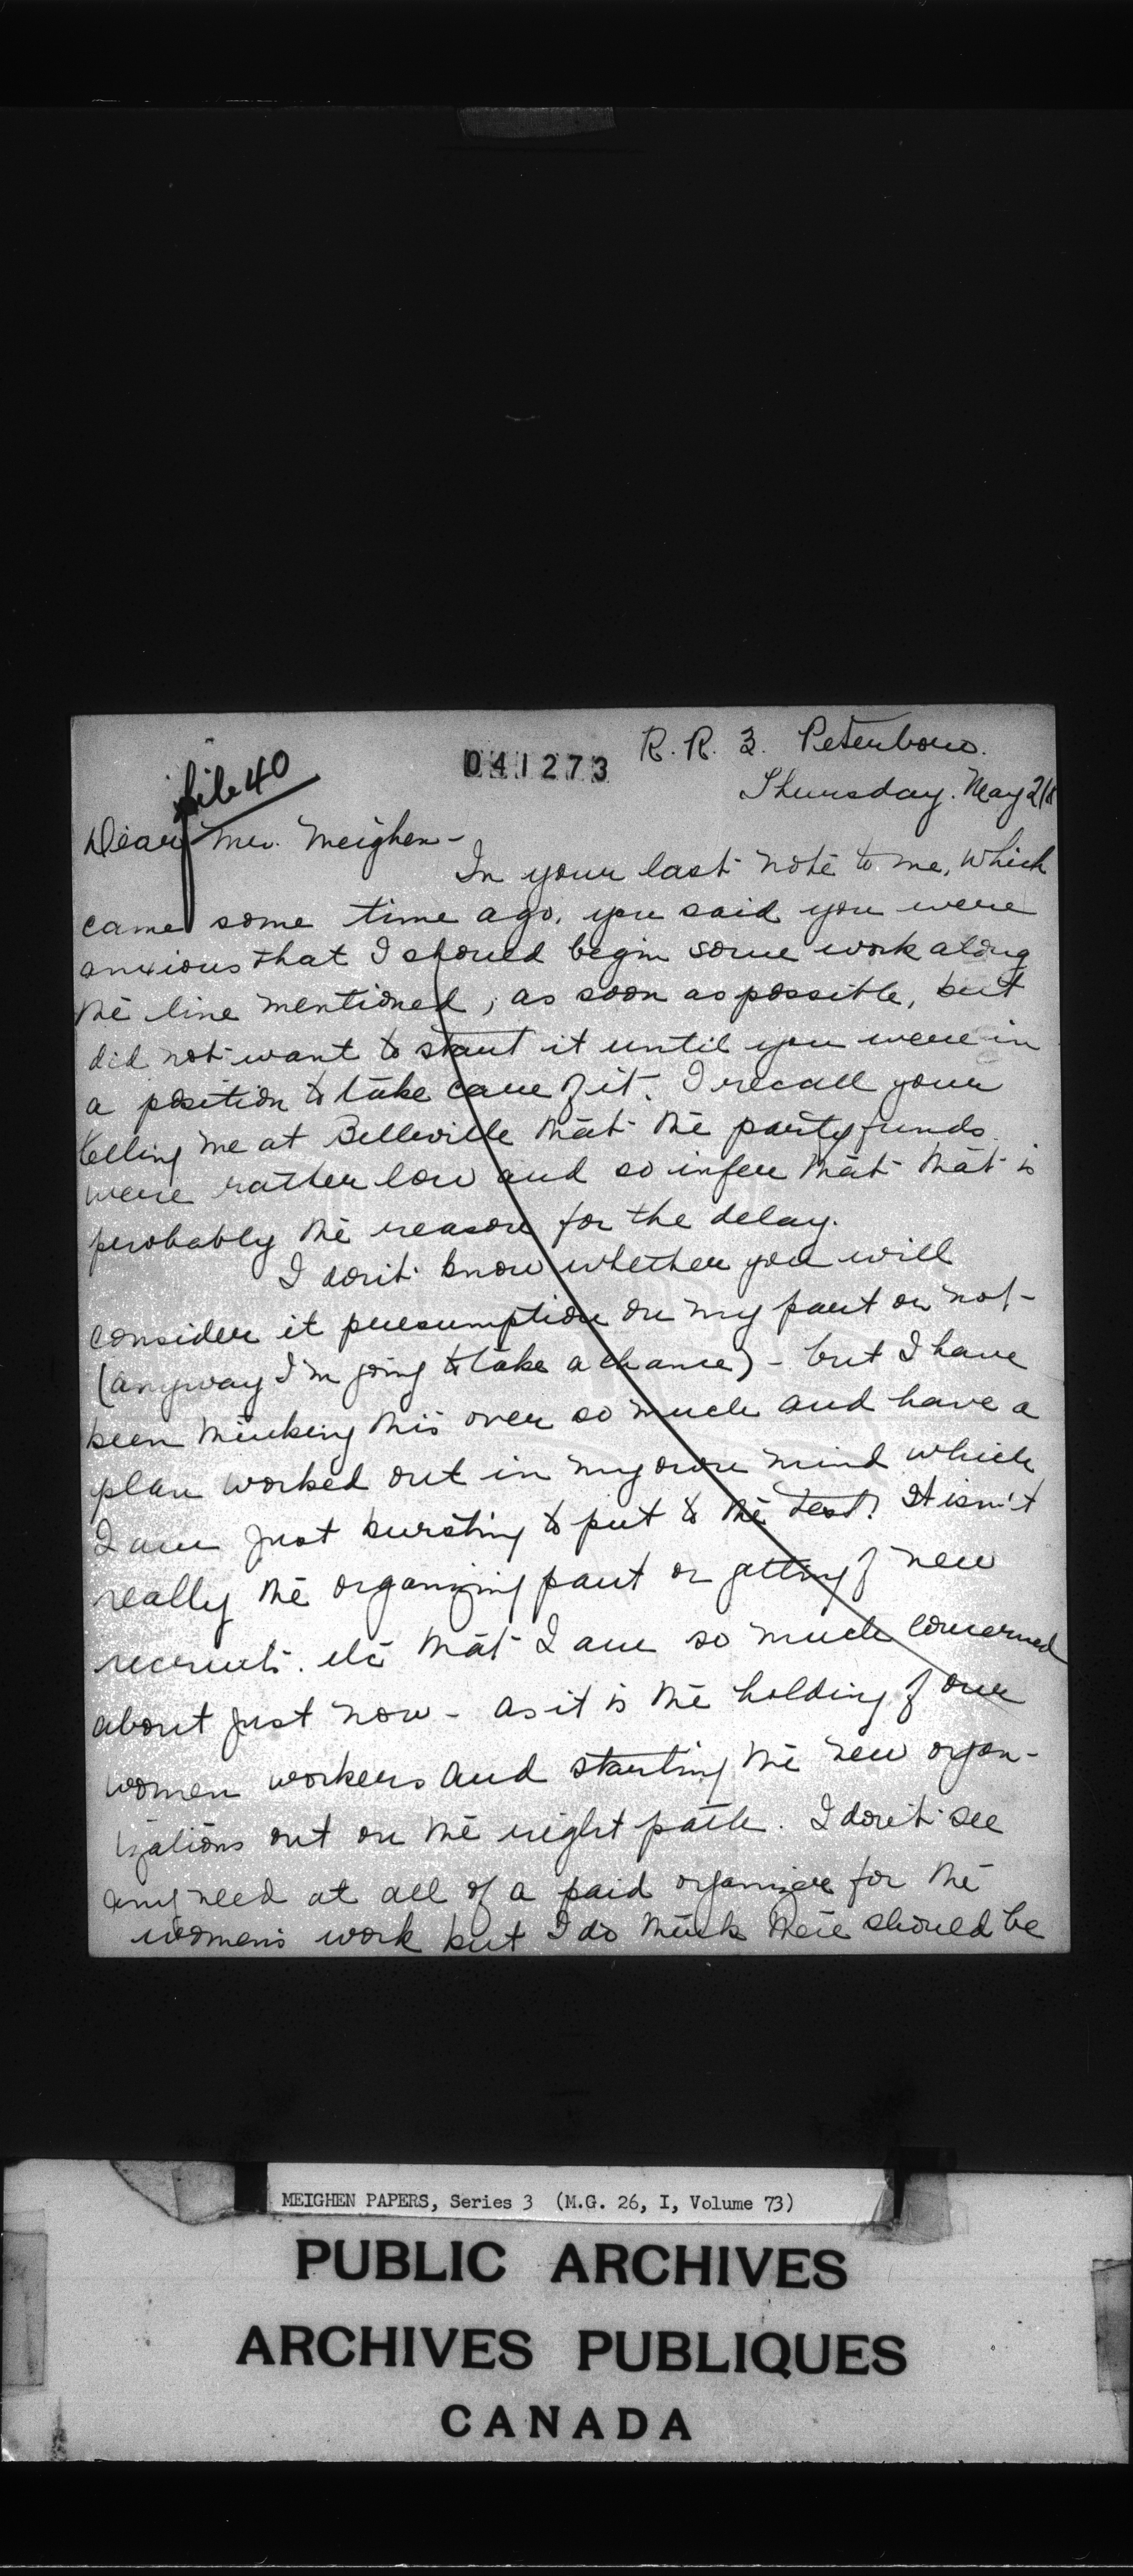 file 40
041273
R. R. 3. Peterboro.
Thursday. May 21/
Dear Mr. Meighen -
In your last note to me, which
came some time ago, you said you were
anxious that I should begin some work along
the line mentioned, as soon as possible, but
did not want to start it until you were in
a position to take care of it. I recall your
telling me at Belleville that the party funds
were rather low and so infer that that is
probably the reason for the delay.
I don't know whether you will
consider it presumption on my part or not -
(anyway I'm going to take a chance) - but I have
been thinking this over so much and have a
plan worked out in my own mind which
I am just bursting to put to the test! It isn't
really the organizing part or getting of new
recruits. etc that I am so much concerned
about just now - as it is the holding of our
women workers and starting the new organ-
izations out on the right path. I don't see
any need at all of a paid organizer for the
women's work but I do think there should be
MEIGHEN PAPERS, Series 3 (M.G. 26, I, Volume 73)
PUBLIC ARCHIVES
ARCHIVES PUBLIQUES
CANADA